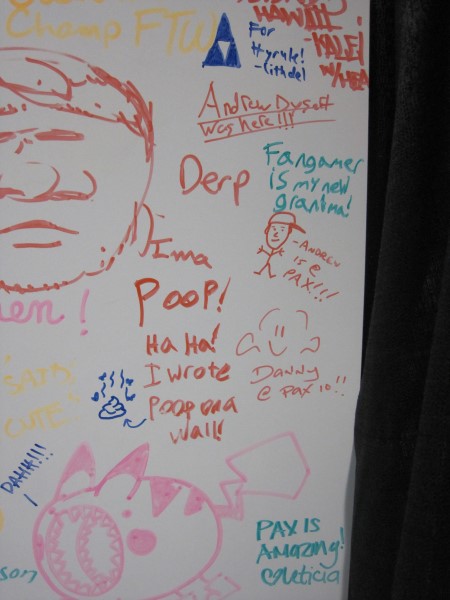 Champ FTW
For
Hyrule!
HAWAII!
-KALEI
Andrew Dysart
was here!!!
Derp
Fangamer
is my new
grandma!
-ANDREW
IS @
PAX!!!
Ima
POOP!
Ha Ha!
I wrote
Poop on a
wall!
Danny
@ PAX 10!!
CUTE!
DAHH!!!
PAX IS
AMAZING!
Leticia
son